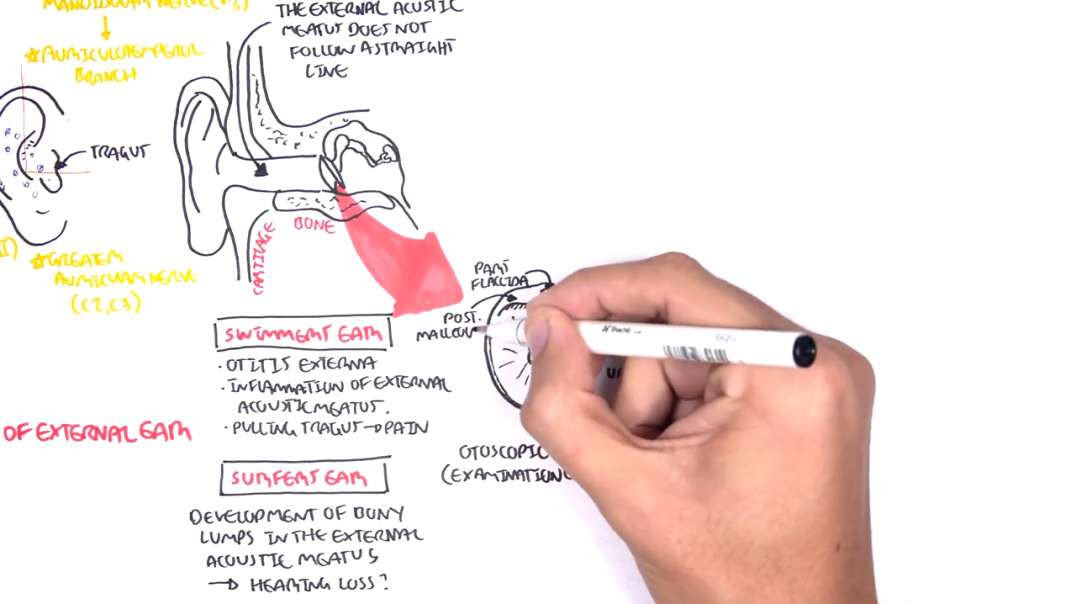 MANDIBULAR NERVE (V3)
★ AURICULOTEMPORAL
BRANCH
TRAGUT
★ GREATER
AURICULAR NERVE
(C2, C3)
THE EXTERNAL ACUSTIC
MEATUS DOES NOT
FOLLOW A STRAIGHT
LINE
BONE
CARTILAGE
SWIMMERS EAR
• OTITIS EXTERNA
• INFLAMMATION OF EXTERNAL
ACOUSTIC MEATUS.
• PULLING TRAGUT → PAIN
OF EXTERNAL EAR
SURFERS EAR
DEVELOPMENT OF BONY
LUMPS IN THE EXTERNAL
ACOUSTIC MEATUS
→ HEARING LOSS?
PART
FLACCIDA
POST.
MALLEOL
OTOSCOPIC
(EXAMINATION